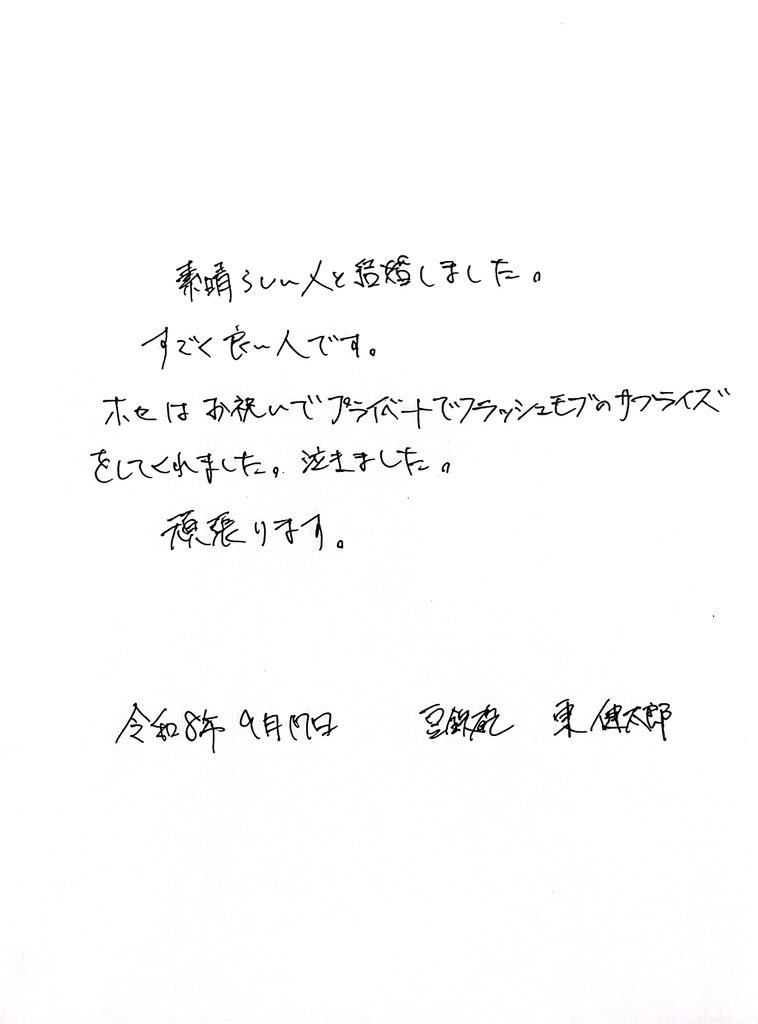 素晴らしい人と結婚しました。
すごく良い人です。
ホセはお祝いでプライベートでフラッシュモブのサプライズ
をしてくれました。泣きました。
頑張ります。
令和8年 9月17日 豆鉄砲 東 健太郎